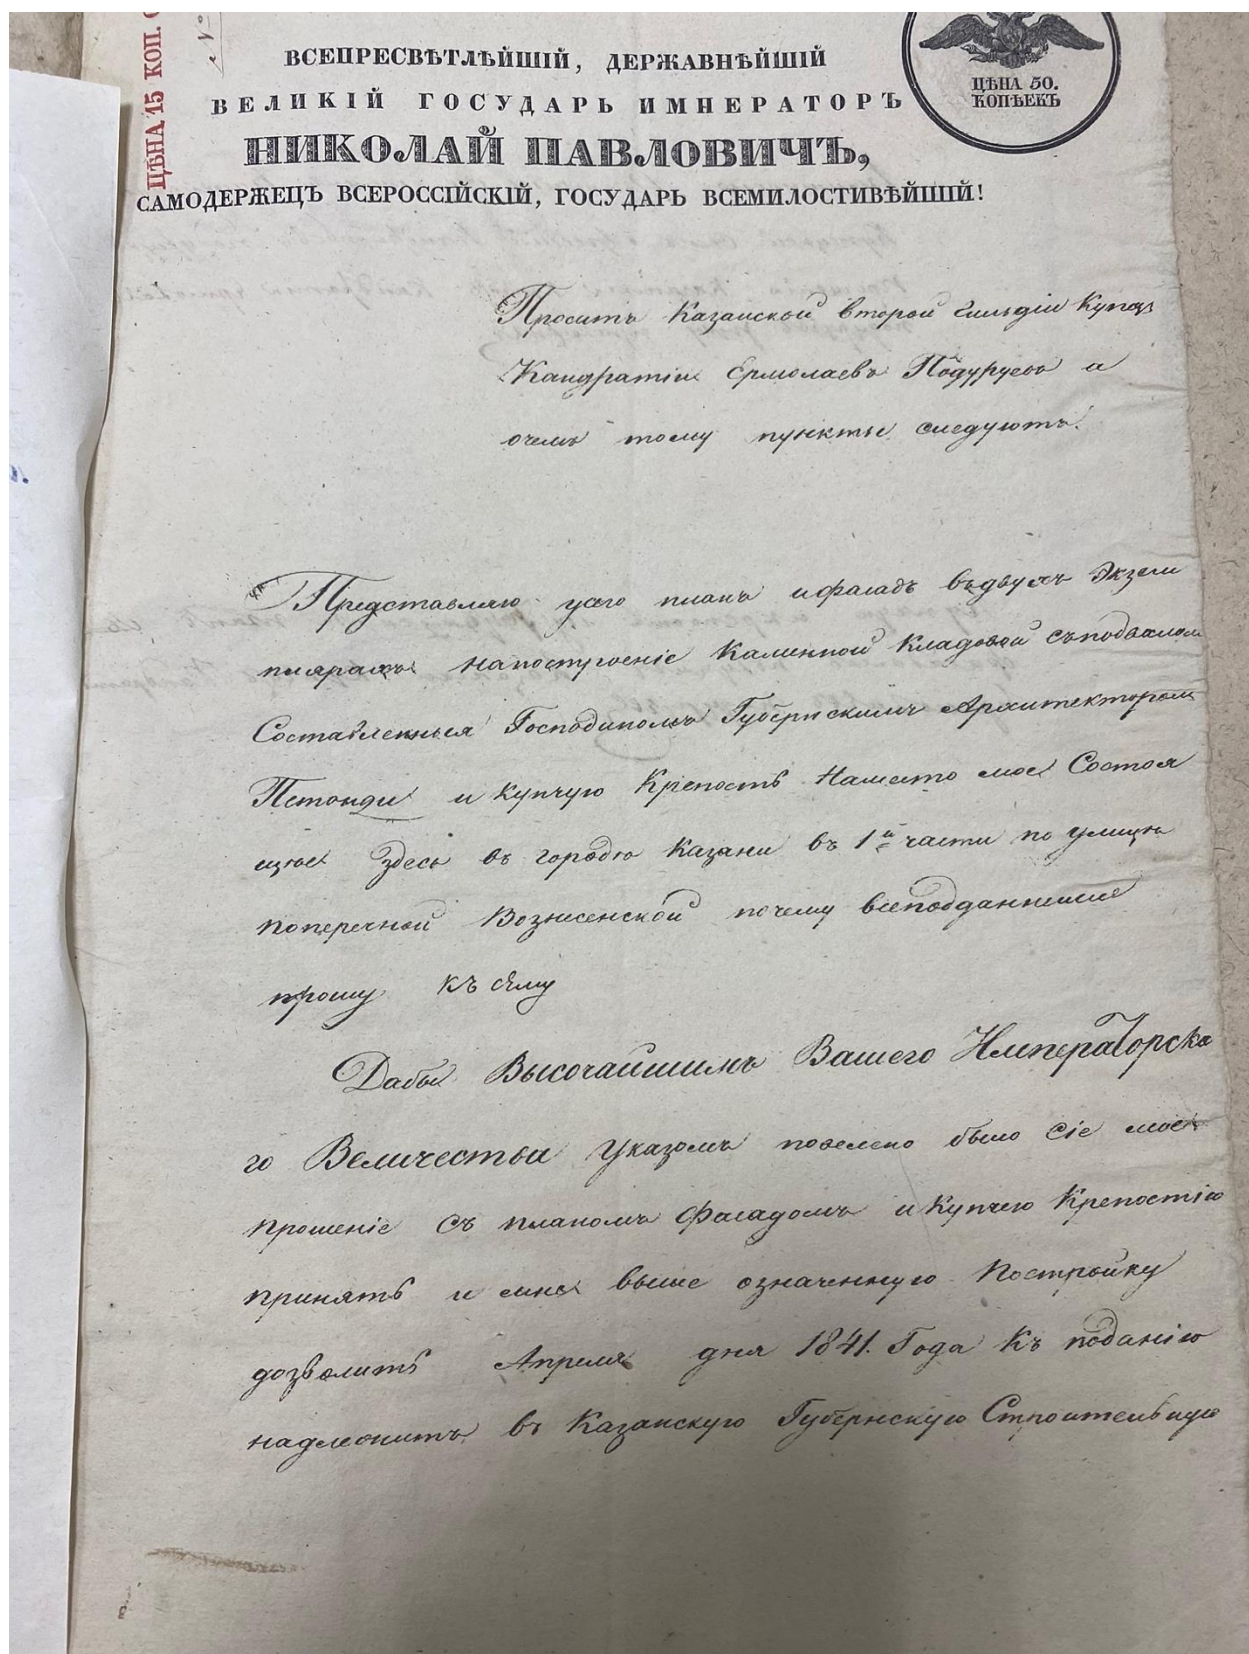 ЦѢНА 15 КОП.
ЦѢНА 50.
КОПѢЕКЪ
ВСЕПРЕСВѢТЛѢЙШІЙ, ДЕРЖАВНѢЙШІЙ
ВЕЛИКІЙ ГОСУДАРЬ ИМПЕРАТОРЪ
НИКОЛАЙ ПАВЛОВИЧЪ,
САМОДЕРЖЕЦЪ ВСЕРОССІЙСКІЙ, ГОСУДАРЬ ВСЕМИЛОСТИВѢЙШІЙ!
Проситъ Казанской второй гильдіи Купецъ
Кандратіи Ермолаевъ Подуруевъ а
очемъ тому пункты следуютъ.
Представляю усего планъ ифасадъ въдвухъ Экзем
плярахъ напостроеніе Каменной Кладовой съподваломъ
Составленныя Господиномъ Губернскимъ Архитекторомъ
Петонди и купчую Крепость Наместо мое Состоя
щее здесь въ городѣ Казани въ 1й части по улицѣ
поперечной Вознесенской почему всеподданнеише
прошу къ сему
Дабы Высочайшимъ Вашего Императорска
го Величества Указомъ повелено было Сіе мое
прошеніе съ планомъ Фасадомъ и Купчею Крепостію
принять и мне выше означенную Постройку
дозволить Апреля дня 1841. Года Къ поданію
надлежитъ въ Казанскую Губернскую Строительную